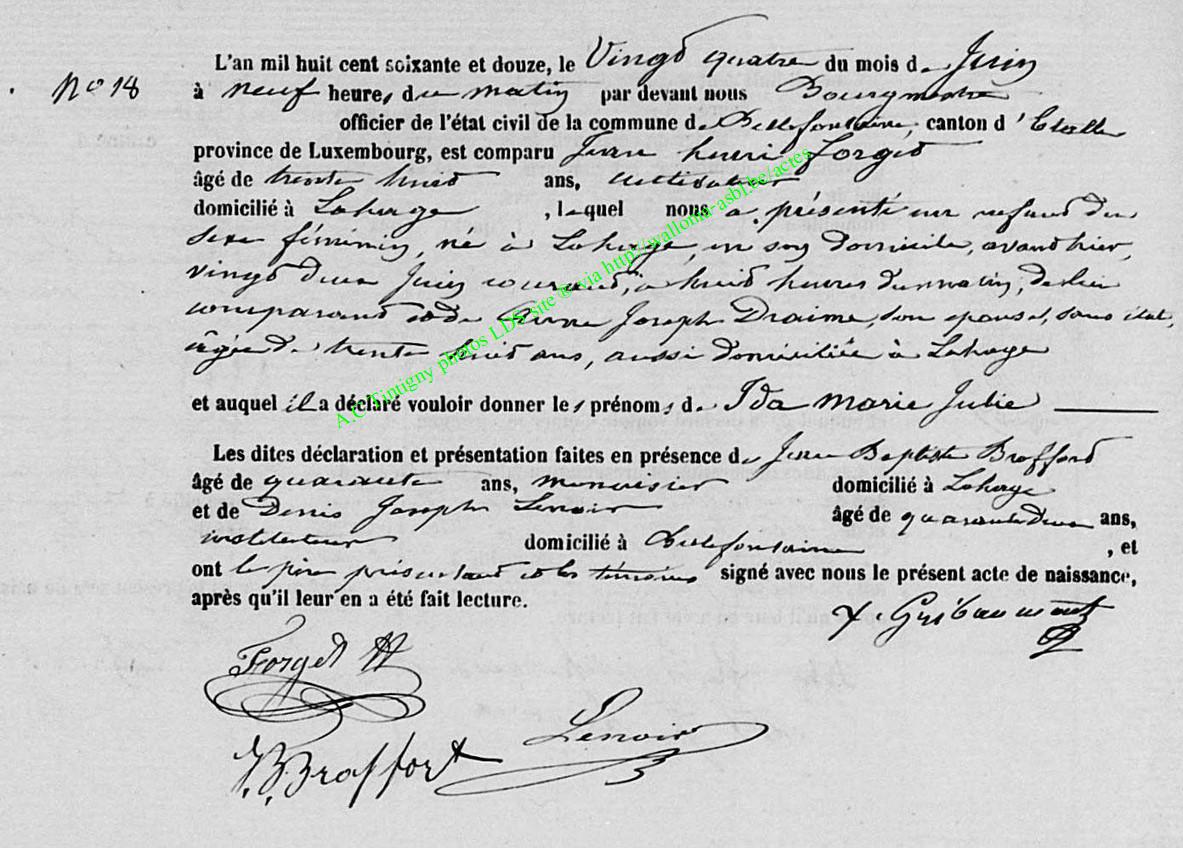 L'an mil huit cent soixante et douze, le Vingt quatre du mois de Juin
No 18
à neuf heures du matin par devant nous Bourgmestre
officier de l'état civil de la commune de Bellefontaine, canton d'Etalle
province de Luxembourg, est comparu Jean henri forget
âgé de trente huit ans, cultivateur
domicilié à Lahage, lequel nous a présenté un enfant du
sexe féminin, né à Lahage, en son domicile, avant hier,
vingt deux Juin courant, à huit heures du matin, de lui
comparant et de Anne Joseph Draime, son épouse, sans état,
âgée de trente huit ans, aussi domiciliée à Lahage
et auquel il a déclaré vouloir donner les prénoms de Ida marie Julie
Les dites déclaration et présentation faites en présence de Jean Baptiste Braffort
âgé de quarante ans, menuisier domicilié à Lahage
et de Denis Joseph Lenoir âgé de quarante deux ans,
instituteur domicilié à Bellefontaine, et
ont le père présentant et les témoins signé avec nous le présent acte de naissance,
après qu'il leur en a été fait lecture.
Forget H
Lenoir
J.B. Braffort
A.C Tintigny photos LDS site ® via http://wallonia-asbl.be/actes